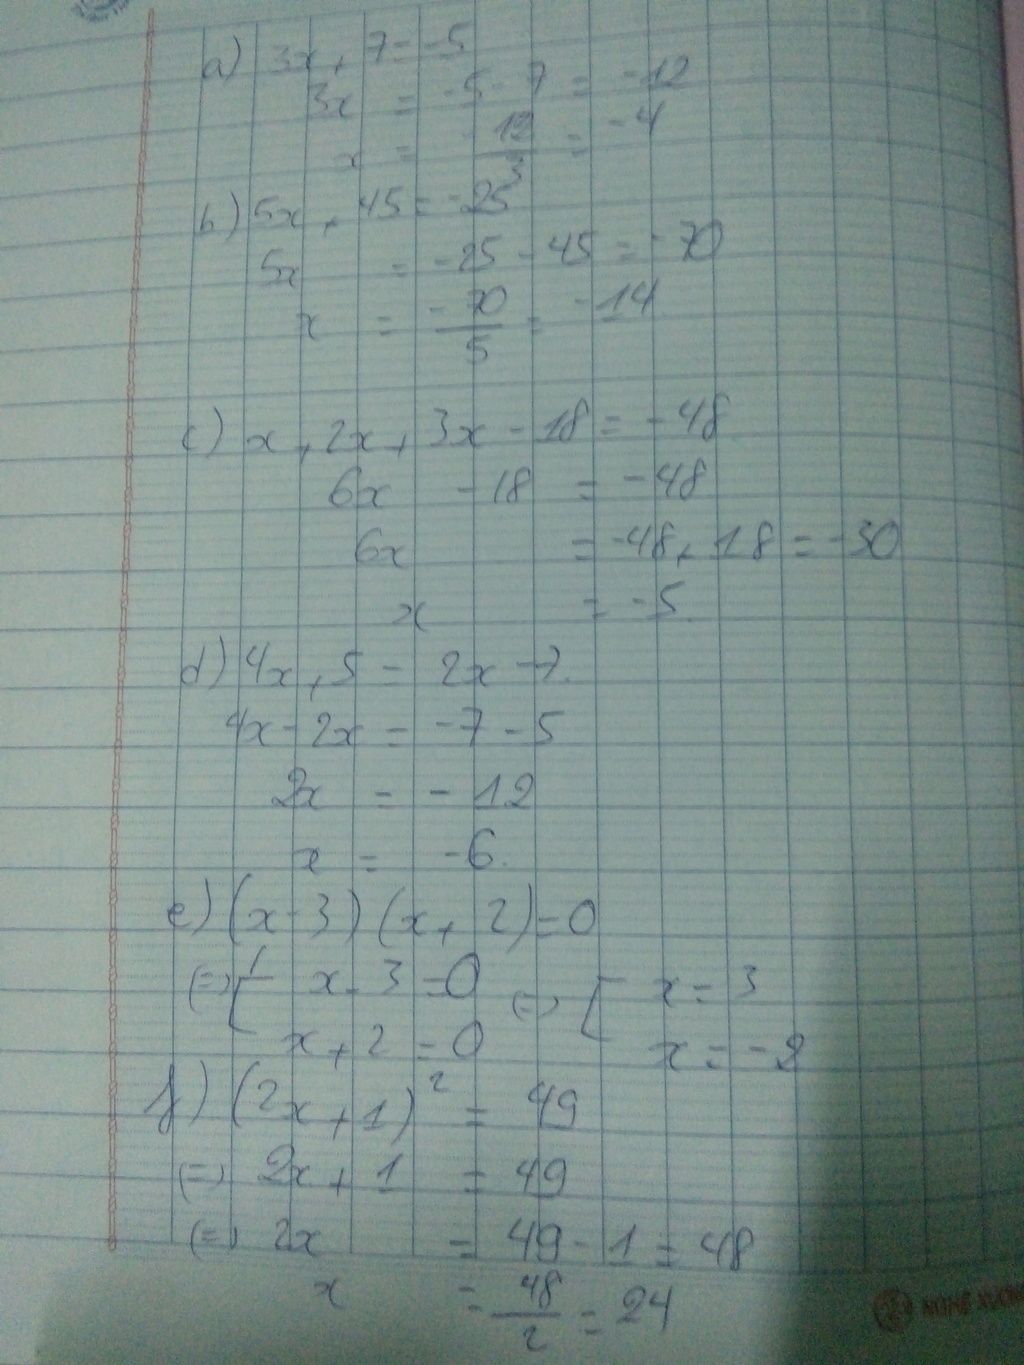 a) 3x + 7 = -5
3x = -5 - 7 = -12
x = -12/3 = -4
b) 5x + 45 = -25
5x = -25 - 45 = -70
x = -70/5 = -14
c) x + 2x + 3x - 18 = -48
6x - 18 = -48
6x = -48 + 18 = -30
x = -5
d) 4x + 5 = 2x - 7.
4x - 2x = -7 - 5
2x = -12
x = -6.
e) (x - 3) (x + 2) = 0
(=) [ x - 3 = 0 (=) [ x = 3
x + 2 = 0 x = -2
f) (2x + 1)² = 49
(=) 2x + 1 = 49
(=) 2x = 49 - 1 = 48
x = 48/2 = 24